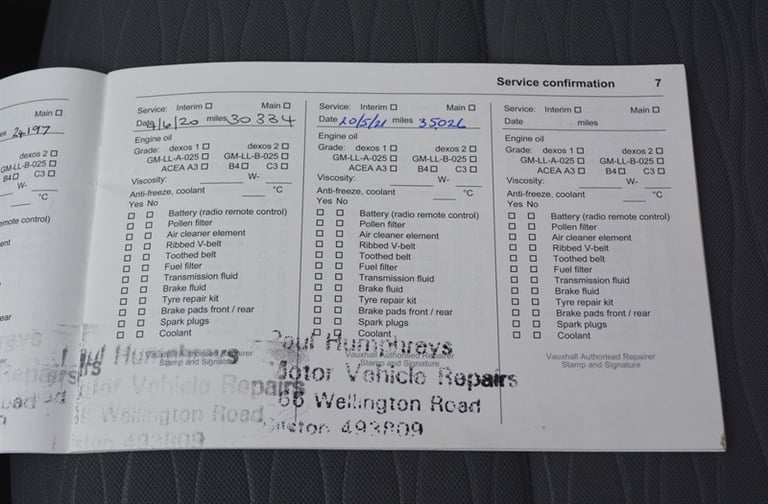 Service confirmation 7
Main ☐
24197
dexos 2 ☐
GM-LL-B-025 ☐
B4 ☐ C3 ☐
W-
°C
emote control)
ent
ear
Service: Interim ☐ Main ☐
Date 9/6/20 miles 30334
Engine oil
Grade: dexos 1 ☐ dexos 2 ☐
GM-LL-A-025 ☐ GM-LL-B-025 ☐
ACEA A3 ☐ B4 ☐ C3 ☐
Viscosity: W-
Anti-freeze, coolant °C
Yes No
☐ ☐ Battery (radio remote control)
☐ ☐ Pollen filter
☐ ☐ Air cleaner element
☐ ☐ Ribbed V-belt
☐ ☐ Toothed belt
☐ ☐ Fuel filter
☐ ☐ Transmission fluid
☐ ☐ Brake fluid
☐ ☐ Tyre repair kit
☐ ☐ Brake pads front / rear
☐ ☐ Spark plugs
☐ ☐ Coolant
Vauxhall Authorised Repairer
Stamp and Signature
Humphreys
Vehicle Repairs
Wellington Road
493809
Service: Interim ☐ Main ☐
Date 20/5/21 miles 35026
Engine oil
Grade: dexos 1 ☐ dexos 2 ☐
GM-LL-A-025 ☐ GM-LL-B-025 ☐
ACEA A3 ☐ B4 ☐ C3 ☐
Viscosity: W-
Anti-freeze, coolant °C
Yes No
☐ ☐ Battery (radio remote control)
☐ ☐ Pollen filter
☐ ☐ Air cleaner element
☐ ☐ Ribbed V-belt
☐ ☐ Toothed belt
☐ ☐ Fuel filter
☐ ☐ Transmission fluid
☐ ☐ Brake fluid
☐ ☐ Tyre repair kit
☐ ☐ Brake pads front / rear
☐ ☐ Spark plugs
☐ ☐ Coolant
Vauxhall Authorised Repairer
Stamp and Signature
Paul Humphreys
Motor Vehicle Repairs
66 Wellington Road
493809
Service: Interim ☐ Main ☐
Date miles
Engine oil
Grade: dexos 1 ☐ dexos 2 ☐
GM-LL-A-025 ☐ GM-LL-B-025 ☐
ACEA A3 ☐ B4 ☐ C3 ☐
Viscosity: W-
Anti-freeze, coolant °C
Yes No
☐ ☐ Battery (radio remote control)
☐ ☐ Pollen filter
☐ ☐ Air cleaner element
☐ ☐ Ribbed V-belt
☐ ☐ Toothed belt
☐ ☐ Fuel filter
☐ ☐ Transmission fluid
☐ ☐ Brake fluid
☐ ☐ Tyre repair kit
☐ ☐ Brake pads front / rear
☐ ☐ Spark plugs
☐ ☐ Coolant
Vauxhall Authorised Repairer
Stamp and Signature